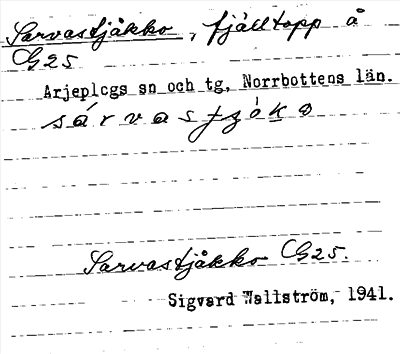 Sarvastjåkko, fjälltopp å
G25
Arjeplogs sn och tg, Norrbottens län.
Sarvastjåkko G25.
Sigvard Wallström, 1941.